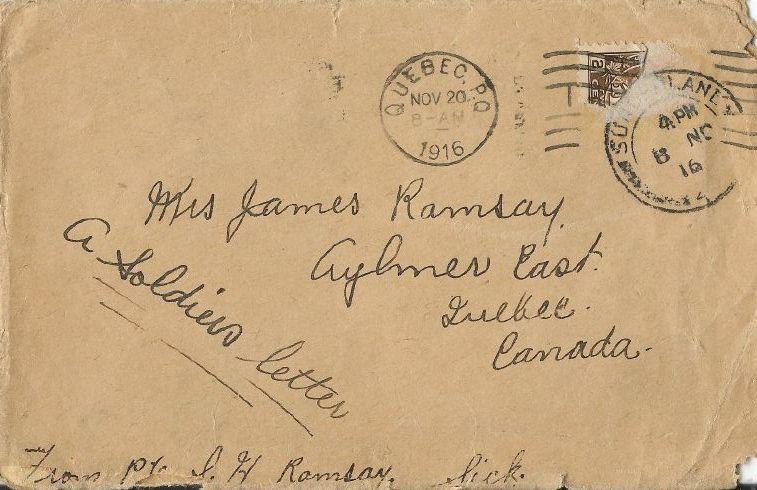 QUEBEC, P.Q.
NOV 20
8-AM
1916
4. PM
8 NO
16
Mrs James Ramsay,
Aylmer East.
Quebec.
Canada.
A Soldiers letter
From Pte S. H Ramsay. Sick.